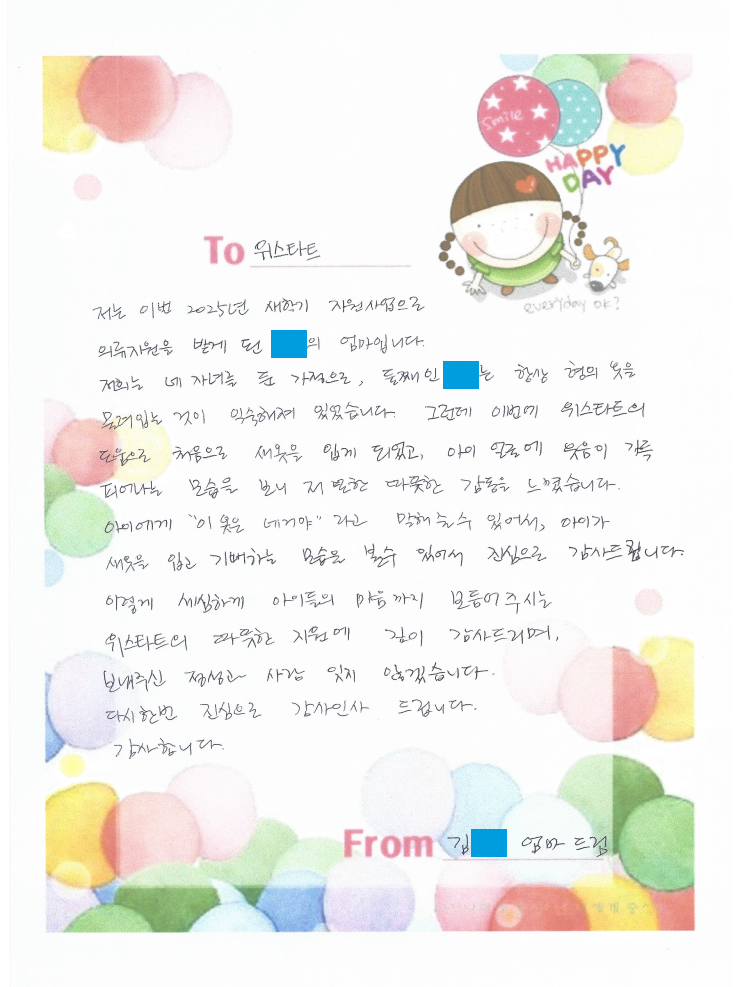 smile
HAPPY
DAY
To 위스타트
everyday ok?
저는 이번 2025년 새학기 지원사업으로
의류지원을 받게 된 의 엄마입니다.
저희는 네 자녀를 둔 가정으로, 둘째인 는 항상 형의 옷을
물려입는 것이 익숙해져 있었습니다. 그런데 이번에 위스타트의
도움으로 처음으로 새옷을 입게 되었고, 아이 얼굴에 웃음이 가득
피어나는 모습을 보니 저 또한 따뜻한 감동을 느꼈습니다.
아이에게 "이 옷은 네거야" 라고 말해줄수 있어서, 아이가
새옷을 입고 기뻐하는 모습을 볼수 있어서 진심으로 감사드립니다.
이렇게 세심하게 아이들의 마음까지 보듬어주시는
위스타트의 따뜻한 지원에 깊이 감사드리며,
보내주신 정성과 사랑 잊지 않겠습니다.
다시한번 진심으로 감사인사 드립니다.
감사합니다.
From 김 엄마 드림